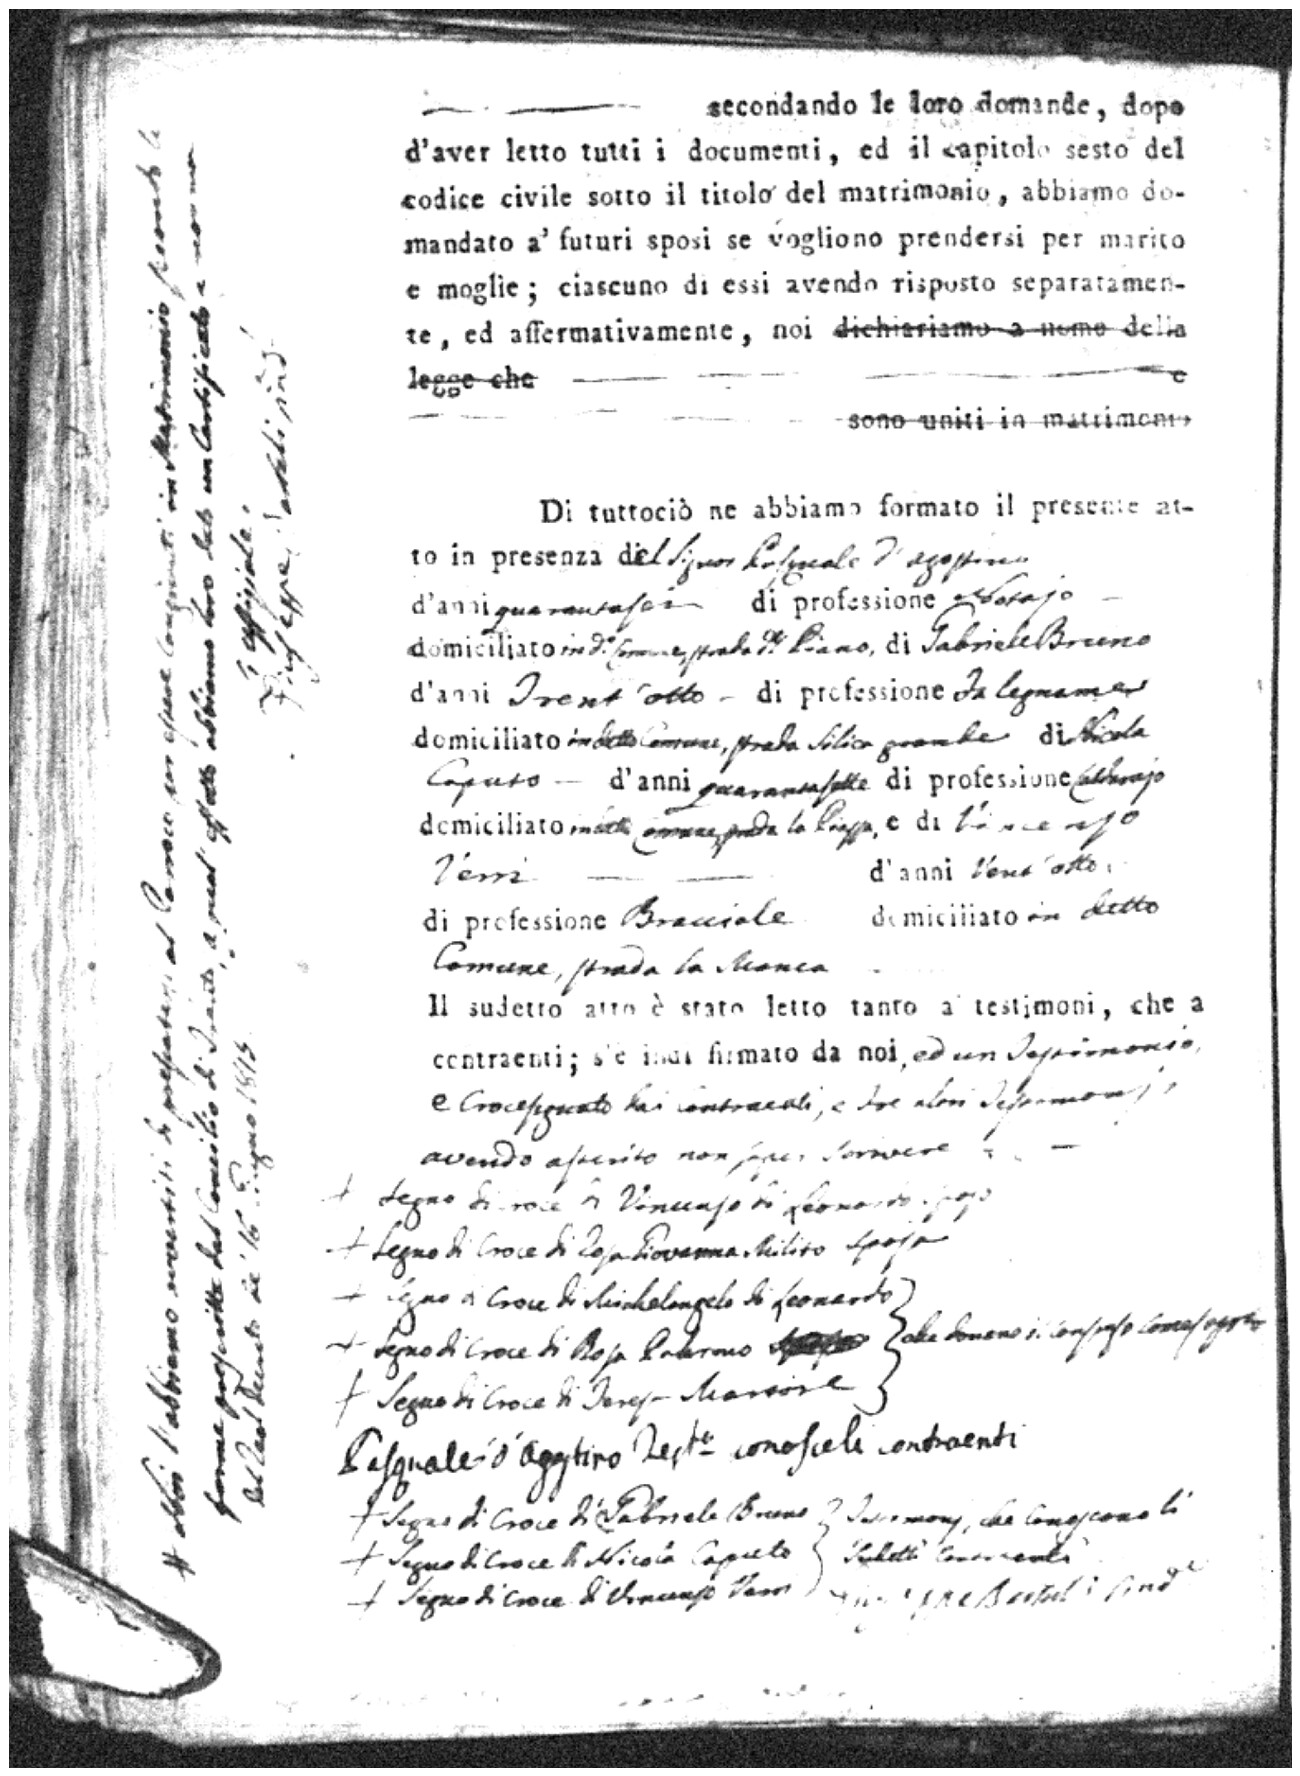 secondando le loro domande, dopo
d'aver letto tutti i documenti, ed il capitolo sesto del
codice civile sotto il titolo del matrimonio, abbiamo do-
mandato a' futuri sposi se vogliono prendersi per marito
e moglie; ciascuno di essi avendo risposto separatamen-
te, ed affermativamente, noi dichiariamo a nome della
legge che e
sono uniti in matrimonio
Di tuttociò ne abbiamo formato il presente at-
to in presenza del Signor Pasquale d'agostino
d'anni quarantasei di professione Notajo
domiciliato in d.o Comune, strada d.o Piano, di Gabriele Bruno
d'anni Trent'otto di professione Falegname
domiciliato in detto Comune, strada Silica grande di Nicola
Caputo d'anni quarantasette di professione Calderajo
domiciliato in detto Comune, strada la Piazza, e di Vincenzo
Verri d'anni Vent'otto
di professione Bracciale domiciliato in detto
Comune, strada la Manca
Il sudetto atto è stato letto tanto a' testimoni, che a
contraenti; s'è indi firmato da noi, ed un Testimonio,
e Crocesignato dai contraenti, e tre altri Testimonj,
avendo asserito non saper scrivere
+ Segno di croce di Vincenzo di Leonardo sposo
+ Segno di Croce di Rosa Giovanna Milito sposa
+ Segno di Croce di Michelangelo di Leonardo
+ Segno di Croce di Rosa Palermo che danno il consenso
+ Segno di Croce di Teresa Marsore
Pasquale d'Agostino Test.e conosce li contraenti
+ Segno di Croce di Gabriele Bruno Testimonj, che conoscono li
+ Segno di Croce di Nicola Caputo sudetti Contraenti
+ Segno di Croce di Vincenzo Verri
# Noi l'abbiamo avvertiti di presentarsi al Parroco per essere congiunti in Matrimonio secondo le
forme prescritte dal Concilio di Trento, a qual'effetto abbiamo loro dato un Certificato a norma
del Real Decreto de' 16 Giugno 1815
L'uffiziale
Giuseppe